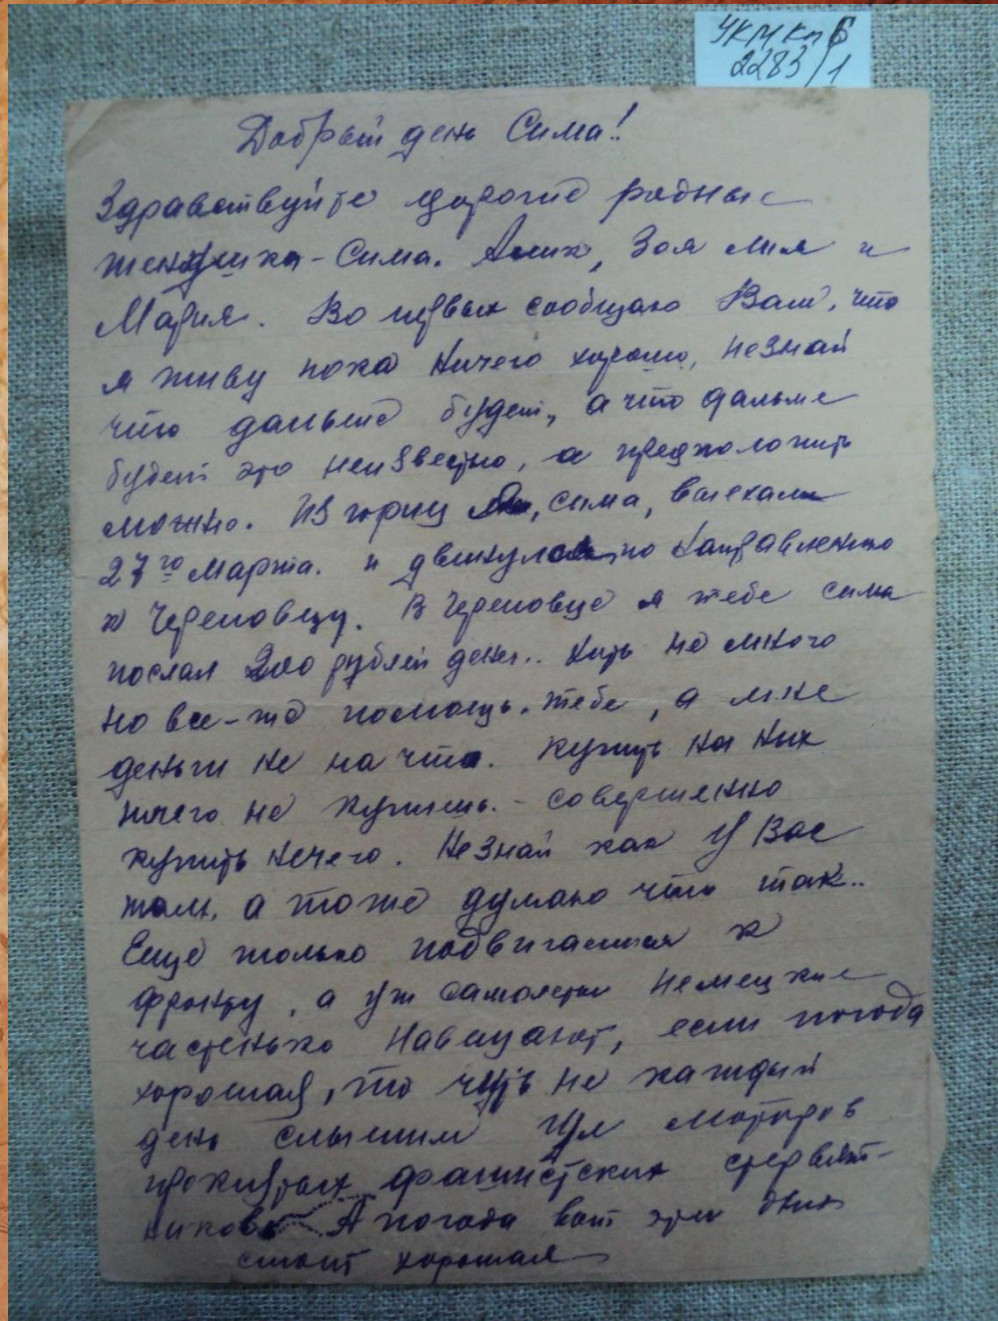 УКМ КП Б
2283/1
Добрый день Сима!
Здравствуйте дорогие родные
женушка - Сима. Алик, Зоя Лия и
Мария. Во первых сообщаю Вам, что
я живу пока ничего хорошо, незнай
что дальше будет, а что дальше
будет это неизвестно, а предположить
можно. Из горец сима, выехали
27го марта. и двинулись по направлению
к Череповцу. В Череповце я тебе сима
послал 200 рублей денег.. хоть не много
но все-же помощь. тебе, а мне
деньги не на что. купить на них
ничего не купишь. - совершенно
купить нечего. Незнай как у Вас
там, а тоже думаю что так..
Еще только подвигаемся к
фронту, а уж самолеты немецкие
частенько навещают, если погода
хорошая, то чуть не каждый
день слышим гул моторов
проклятых фашистских стервят-
ников. А погода вот эти дни
стоит хорошая